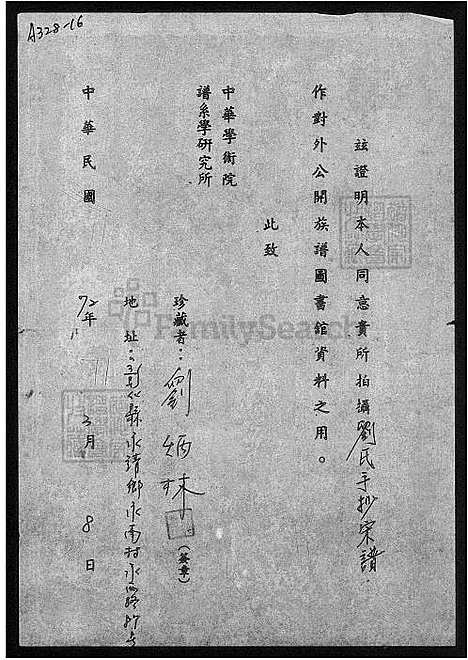 A328-16
玆證明本人同意貴所拍攝劉氏手抄宗譜
作對外公開族譜圖書館資料之用。
此致
中華學術院
譜系學研究所
珍藏者：劉炳
(簽章)
地址：彰化縣永靖鄉永南村永
中華民國72年3月8日
FamilySearch